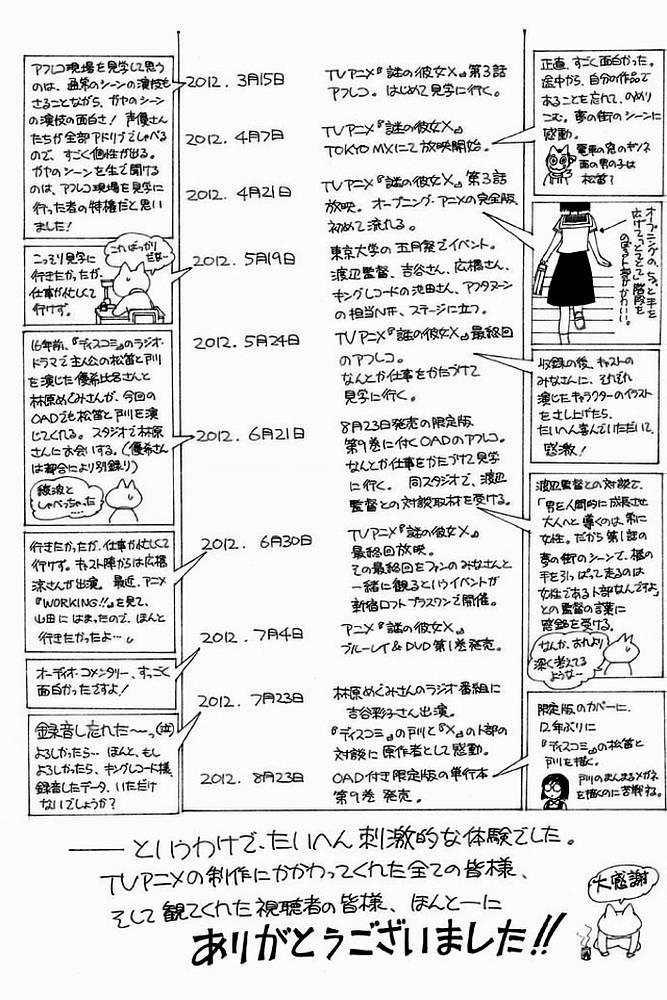 アフレコ現場を見学して思う
のは、通常のシーンの演技も
さることながら、ガヤのシーン
の演技の面白さ! 声優さん
たちが全部アドリブでしゃべる
ので、すごく個性が出る。
ガヤのシーンを生で聞ける
のは、アフレコ現場を見学に
行った者の特権だと思い
ました!
2012. 3月15日
TVアニメ『謎の彼女X』第3話
アフレコ。はじめて見学に行く。
正直、すごく面白かった。
途中から、自分の作品で
あることを忘れて、のめり
こむ。夢の街のシーンに
感動。
電車の窓のキツネ
面の男の子は
松笛?
2012. 4月7日
TVアニメ『謎の彼女X』
TOKYO MXにて放映開始。
2012. 4月21日
TVアニメ『謎の彼女X』第3話
放映。オープニング・アニメの完全版
初めて流れる。
オープニングの、ちょっと手を
広げて"とてとて"階段を
のぼる卜部がかわいい。
こっそり見学に
行きたかったが、
仕事が忙しくて
行けず。
こればっかり
だな…
2012. 5月19日
東京大学の五月祭でイベント。
渡辺監督、吉谷さん、広橋さん、
キングレコードの池田さん、アフタヌーン
の担当N氏、ステージに立つ。
2012. 5月24日
TVアニメ『謎の彼女X』最終回
のアフレコ。
なんとか仕事をかたづけて
見学に行く。
収録の後、キャストの
みなさんに、それぞれ
演じたキャラクターのイラスト
をさし上げたら、
たいへん喜んでいただいて、
感激!
16年前、『ディスコミ』のラジオ・
ドラマで主人公の松笛と戸川
を演じた優希比呂さんと
林原めぐみさんが、今回の
OADでも松笛と戸川を演
じてくれる。スタジオで林原
さんにお会いする。(優希さん
は都合により別録り)
綾波と
しゃべっちゃった…
2012. 6月21日
8月23日発売の限定版
第9巻に付くOADのアフレコ。
なんとか仕事をかたづけて見学
に行く。 同スタジオで、渡辺
監督との対談取材を受ける。
渡辺監督との対談で、
「男を人間的に成長させ
大人へと導くのは、常に
女性。だから第1話の
夢の街のシーンで、椿の
手を引っぱって走るのは
女性である卜部なんですよ」
との監督の言葉に
感銘を受ける。
なんか、おれより
深く考えてる
ような…
行きたかったが、仕事が忙しくて
行けず。キャスト陣からは広橋
涼さんが出演。 最近、アニメ
『WORKING!!』を見て、
山田にはまったので、ほんと
行きたかったよ…。
2012. 6月30日
TVアニメ『謎の彼女X』
最終回放映。
その最終回をファンのみなさんと
一緒に観るというイベントが
新宿ロフトプラスワンで開催。
2012. 7月4日
アニメ『謎の彼女X』
ブルーレイ&DVD第1巻発売。
オーディオ・コメンタリー、すっごく
面白かったですよ!
2012. 7月23日
林原めぐみさんのラジオ番組に
吉谷彩子さん出演。
『ディスコミ』の戸川と『X』の卜部の
対談に原作者として感動。
録音し忘れた〜っ(泣)
よろしかったら… ほんと、もし
よろしかったら、キングレコード様、
録音したデータ、いただけ
ないでしょうか?
2012. 8月23日
OAD付き限定版の単行本
第9巻 発売。
限定版のカバーに、
12年ぶりに
『ディスコミ』の松笛と
戸川を描く。
戸川のまんまるメガネ
を描くのに苦戦ね。
――というわけで、たいへん刺激的な体験でした。
TVアニメの制作にかかわってくれた全ての皆様、
そして観てくれた視聴者の皆様、ほんと―に
ありがとうございました!!
大感謝